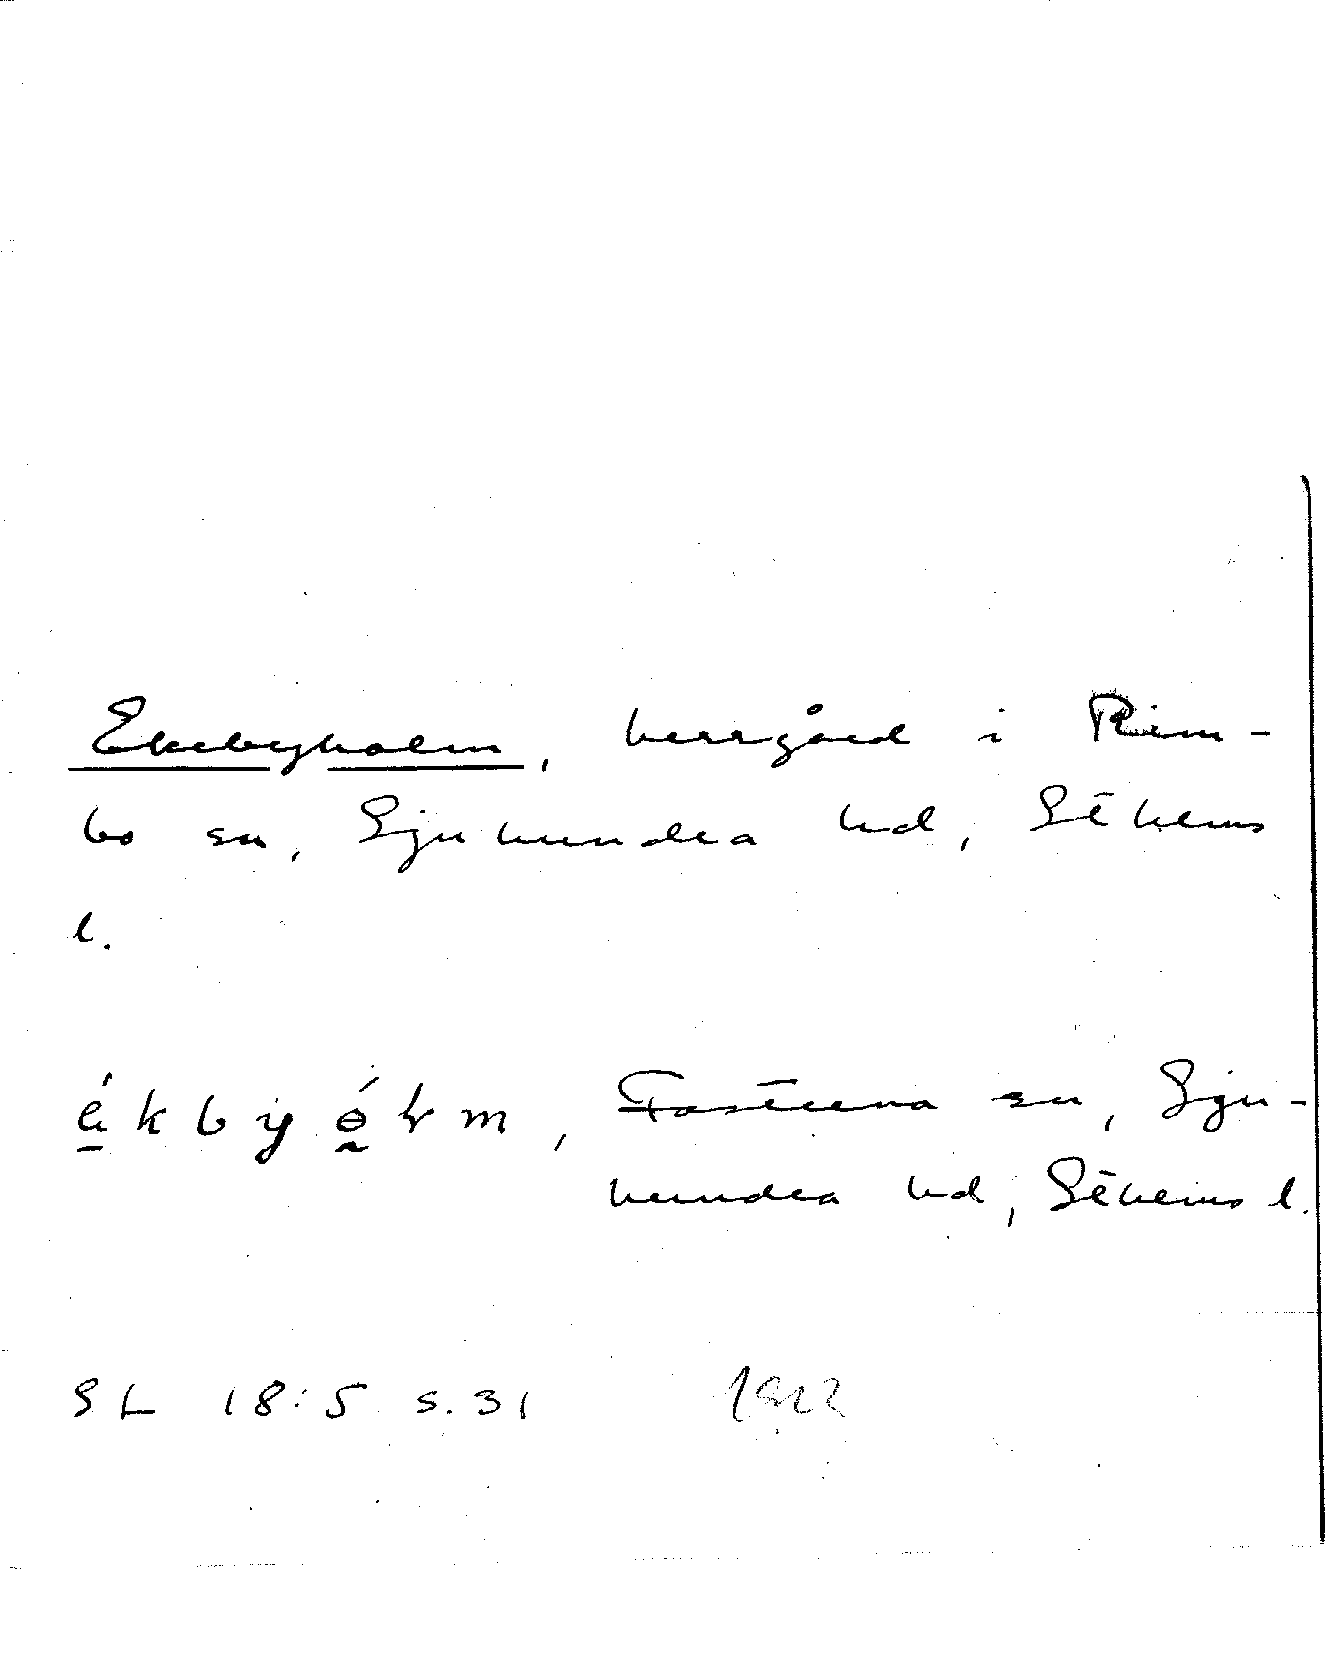 Ekebyholm, herrgård i Rim-
bo sn, Sjuhundra hd, Sthlms
l.
ékbyólm, Fasterna sn, Sju-
hundra hd, Sthlms l.
SL 18:5 s. 31